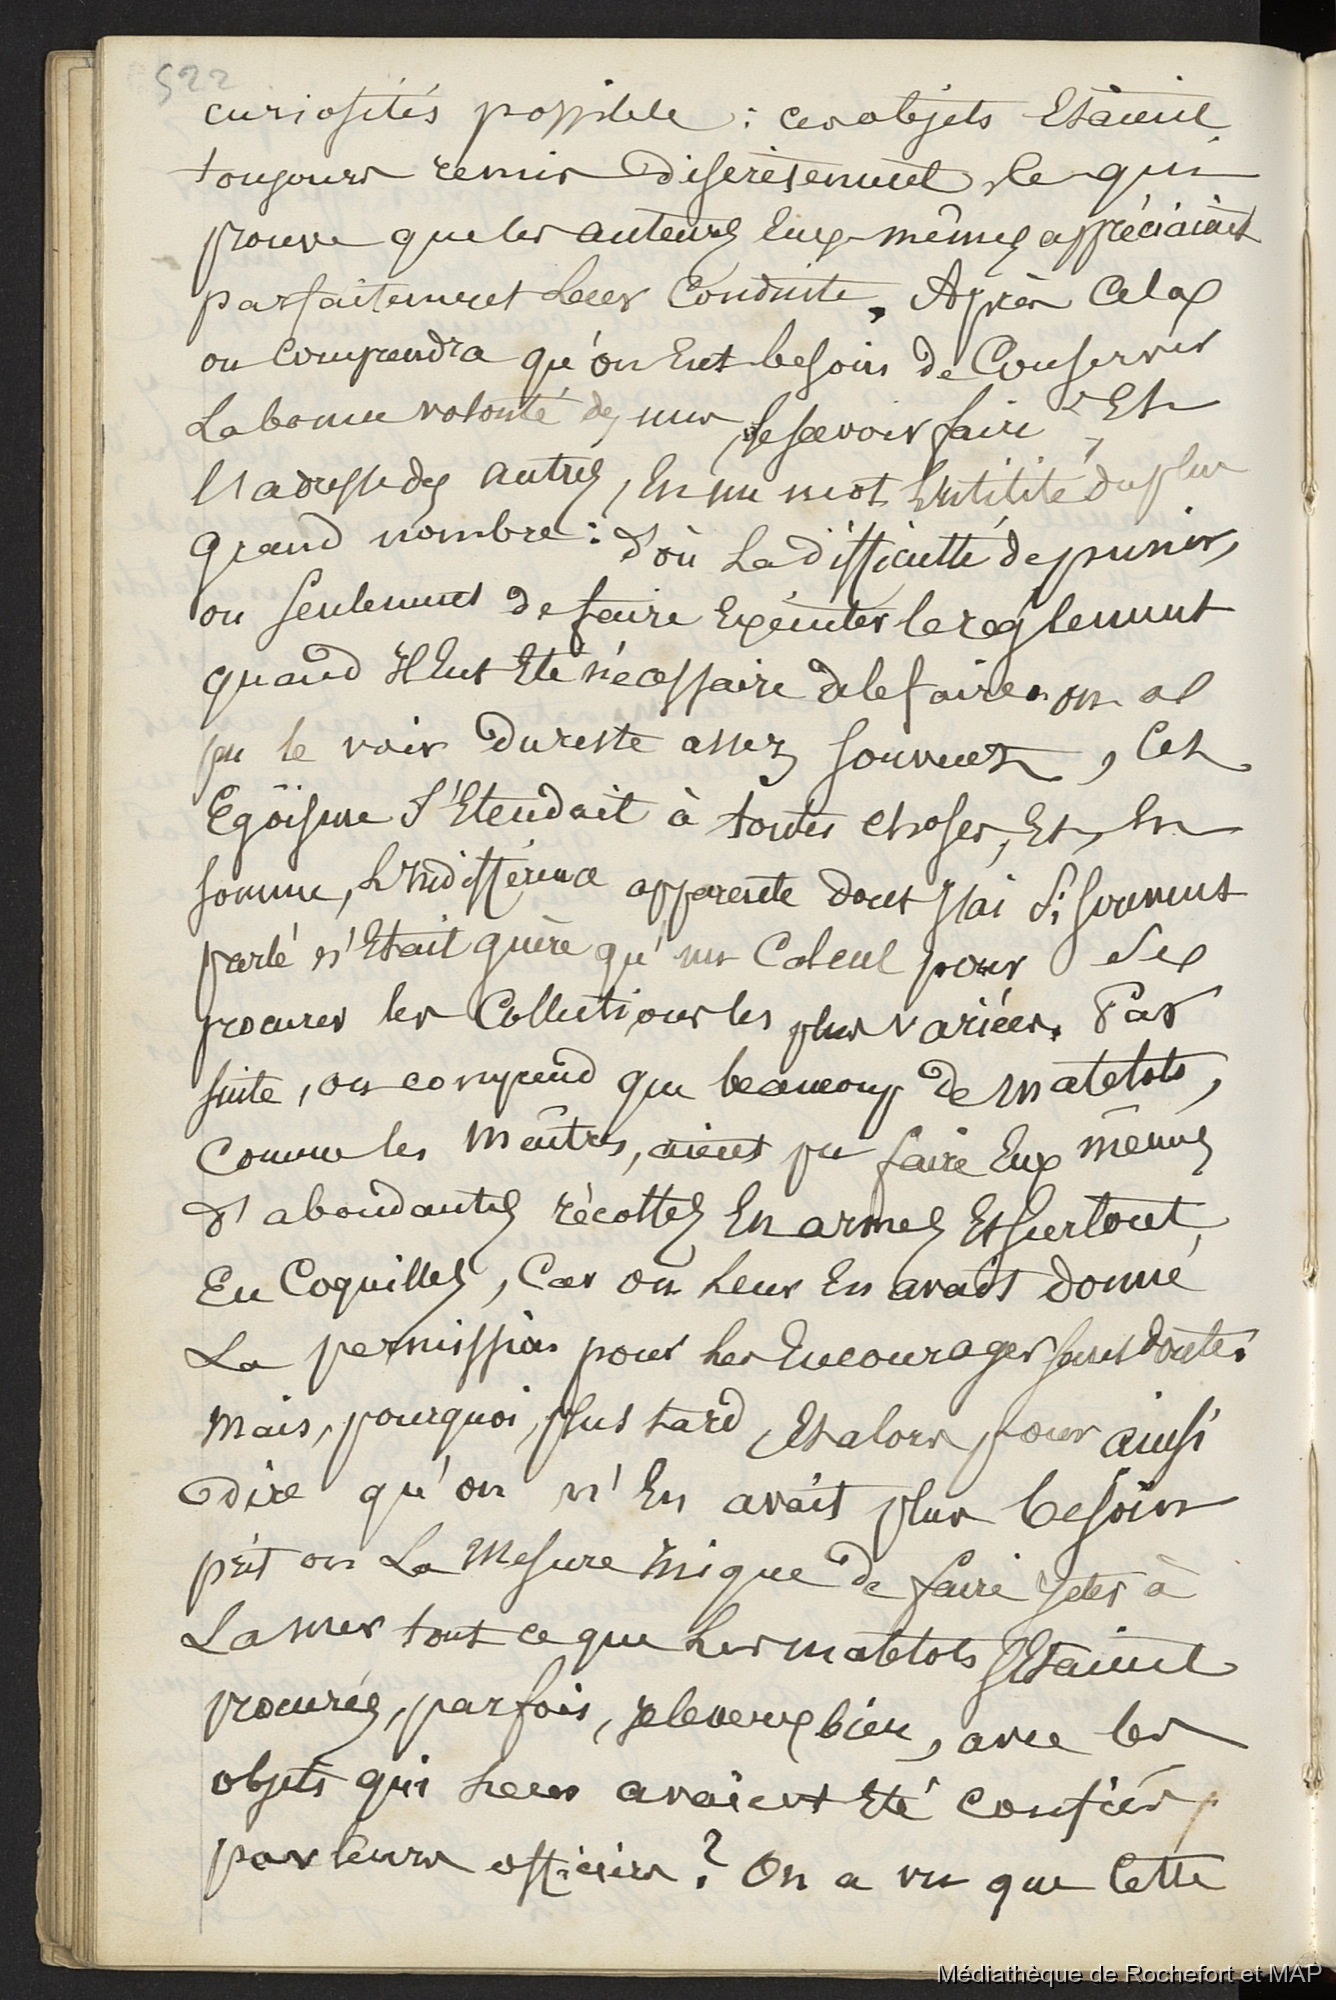 522
curiosités possible : ces objets Etaient
toujours remis discrètement, ce qui
prouve que les auteurs Eux-mêmes appréciaient
parfaitement Leur Conduite. Après Cela
on comprendra qu'on Eut besoin de Conserver
La bonne volonté des uns, le savoir faire Et
l'adresse des autres, En un mot L'utilité du plus
grand nombre : d'où La difficulté de punir,
ou seulement de faire Exécuter le règlement
quand Il Eut Eté nécessaire de le faire. On a
pu le voir du reste assez souvent, Cet
Egoïsme s'Etendait à toutes choses, Et, En
somme, L'Indifférence apparente dont J'ai si souvent
parlé n'Etait guère qu'un Calcul pour Se
procurer les Collections les plus variées. Par
suite, on comprend que beaucoup de matelots,
Comme les Maîtres, aient pu faire Eux mêmes
d'abondantes récoltes En armes Et surtout
En Coquilles, Car on Leur En avait donné
La permission pour Les Encourager sans doute.
Mais, pourquoi, plus tard, Et alors pour ainsi
dire qu'on n'En avait plus besoin
prit on La Mesure Inique de faire Jeter à
La mer tout ce que Les matelots s'Etaient
procurés, parfois, je le veux bien, avec les
objets qui Leur avaient Eté confiés,
par leurs officiers ? On a vu que Cette
Médiathèque de Rochefort et MAP